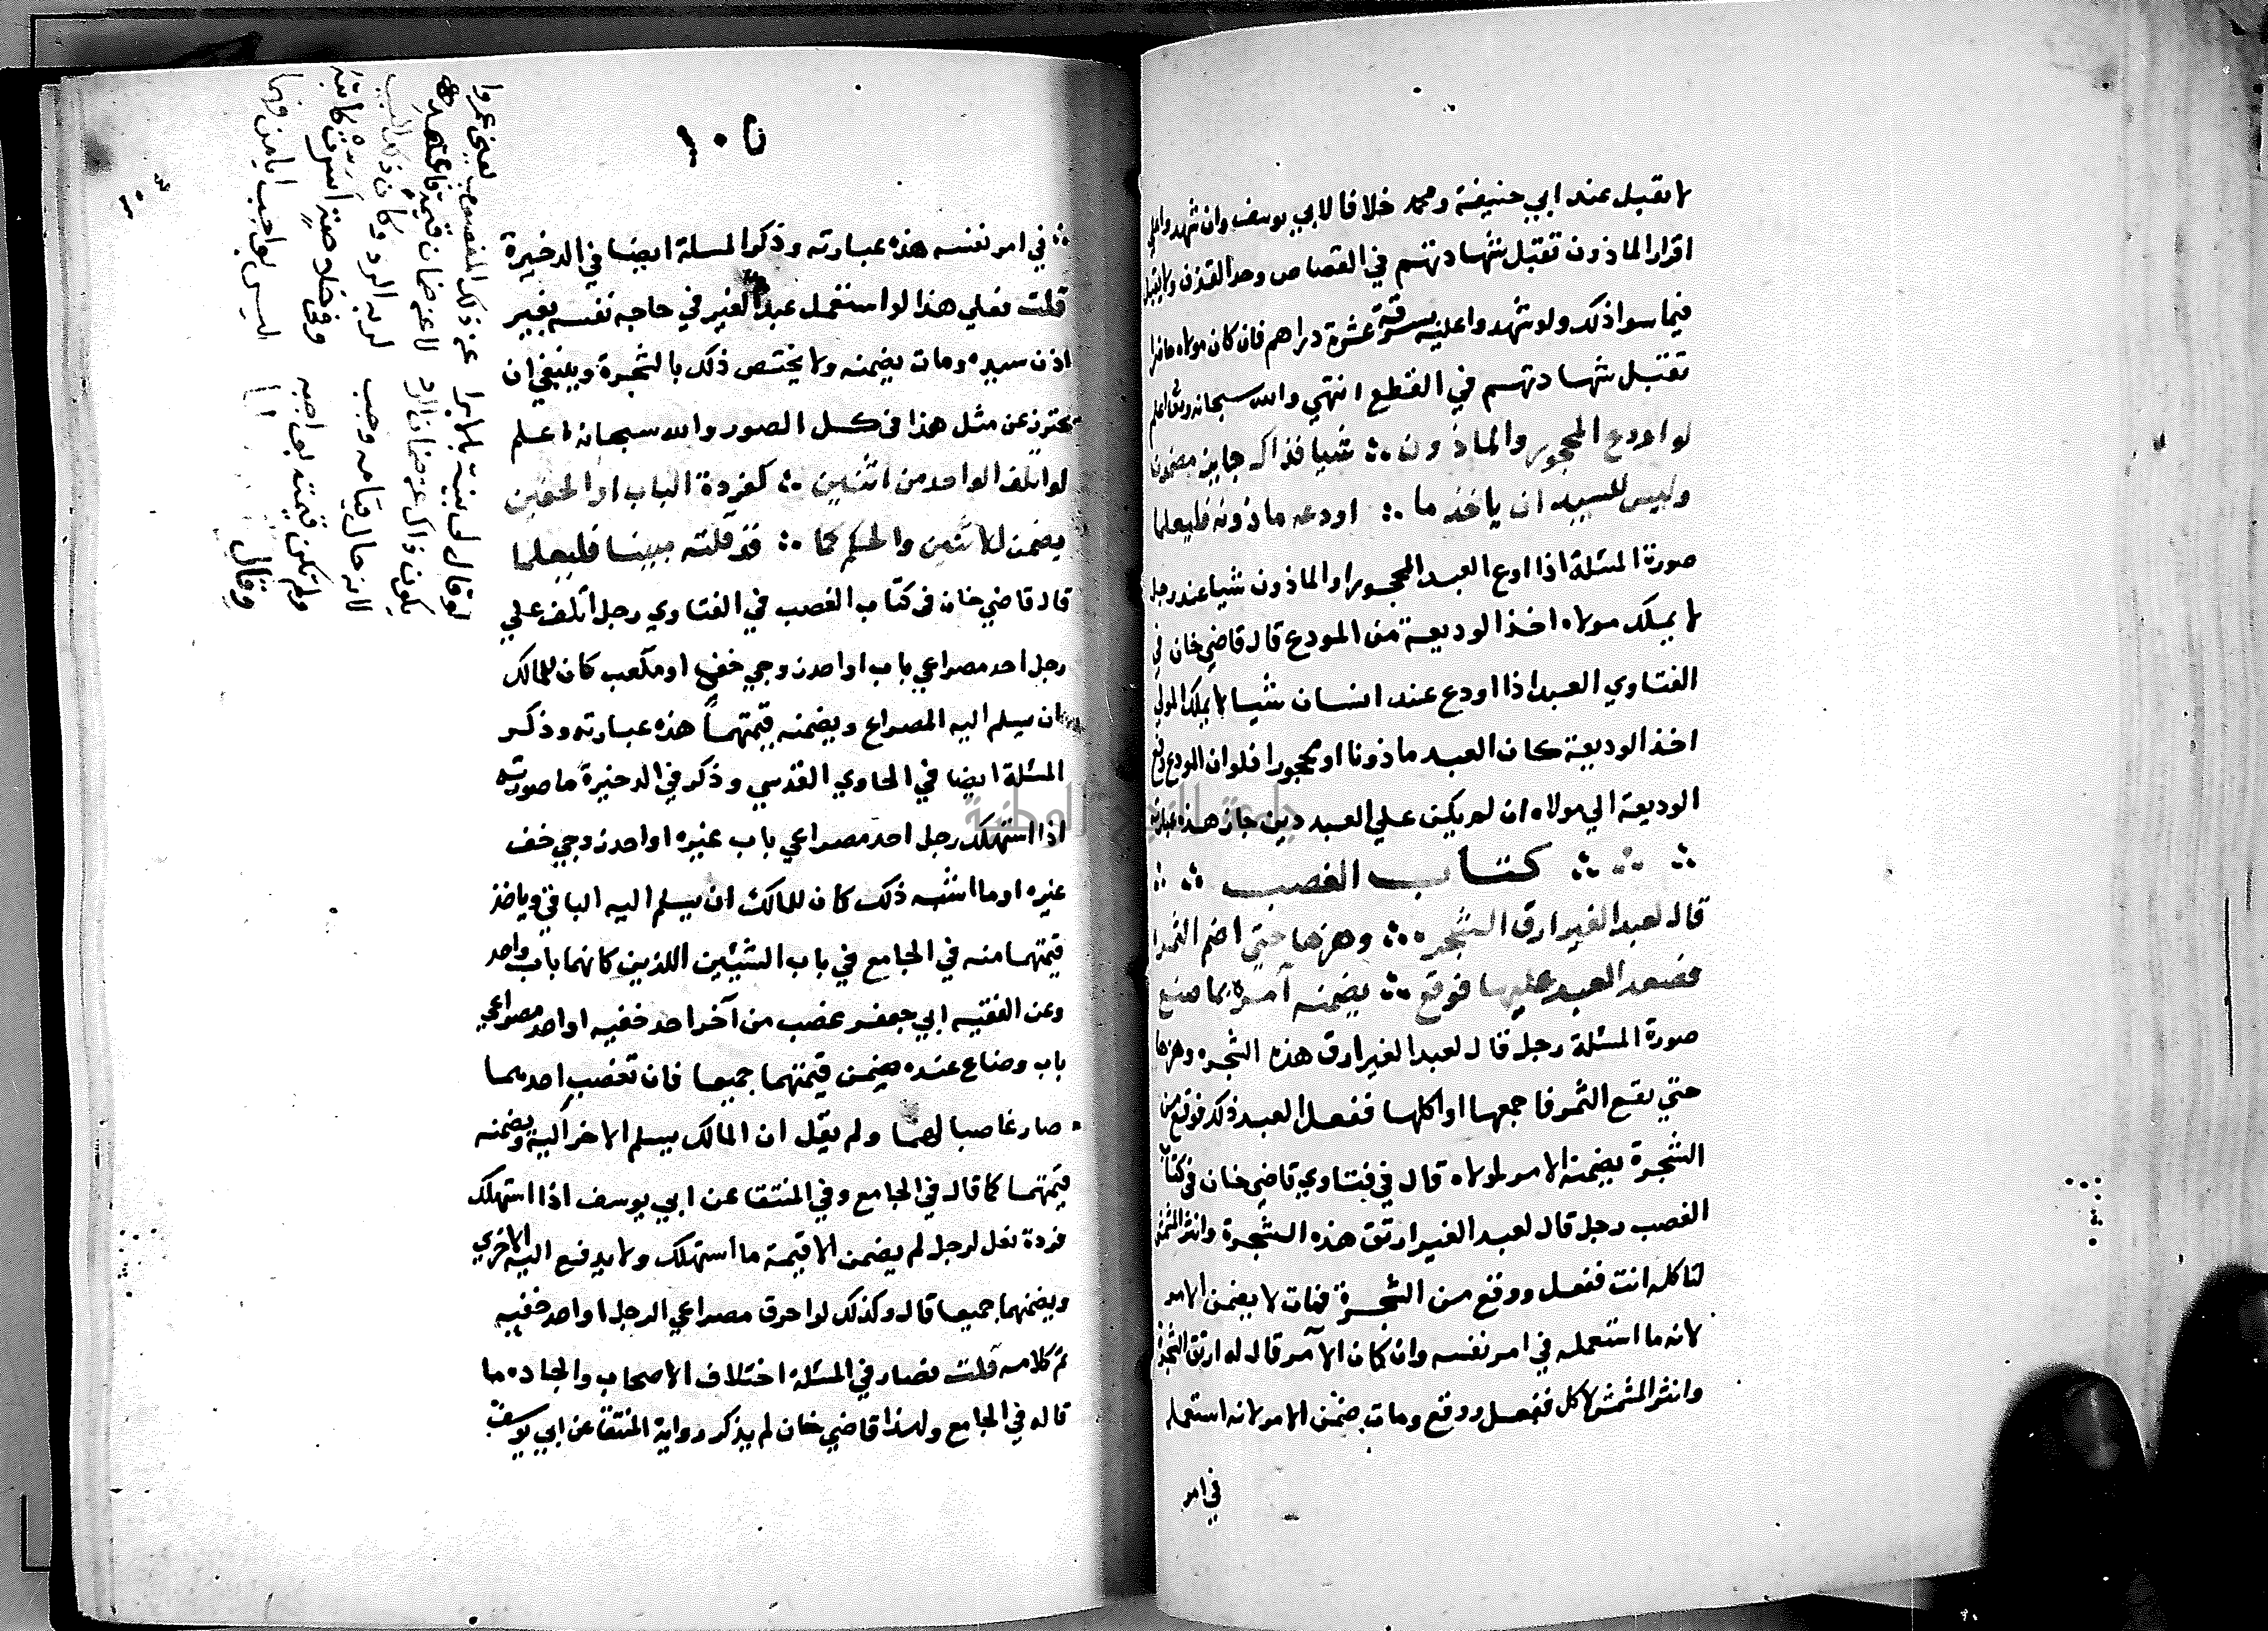 لا تقبل عند ابي حنيفة ومحمد خلافا لابي يوسف وان شهدوا علي
اقرار الماذون تقبل شهادتهم في القصاص وحد القذف ولا يقبل
فيما سوا ذلك ولو شهدوا عليه بسرقة عشرة دراهم فان كان مولاه حاضرا
تقبل شهادتهم في القطع انتهي والله سبحانه وتعالى اعلم
لو اودع المحجور والماذون ∴ شيا فذاك جايز مضمون
وليس للسيد ان ياخذ ما ∴ اودعه ماذونه فليعلما
صورة المسئلة اذا اودع العبد المحجور او الماذون شيا عند رجل
لا يملك مولاه اخذ الوديعة من المودع قال قاضي خان في
الفتاوي العبد اذا اودع عند انسان شيا لا يملك المولي
اخذ الوديعة كان العبد ماذونا او محجورا فلو ان المودع دفع
الوديعة الي مولاه ان لم يكن علي العبد دين جاز هذه عبارته
∴ ∴ ∴ كتاب الغصب ∴ ∴
قال لعبد الغير ارق الشجره ∴ وهزها حتي اضم الثمرا
فصعد العبد عليها فوقع ∴ يضمنه آمره بما صنع
صورة المسئلة رجل قال لعبد الغير ارق هذه الشجره وهزها
حتي يقع الثمر فاجمعها او اكلها ففعل العبد ذلك فوقع من
الشجرة يضمنه الامر لمولاه قال في فتاوي قاضي خان في كتاب
الغصب رجل قال لعبد الغير ارتق هذه الشجرة وانثر المشمش
لتاكله انت ففعل ووقع من الشجرة فمات لا يضمن الامر
لانه ما استعمله في امر نفسه وان كان الآمر قال له ارتق الشجرة
وانثر المشمش لاكل ففعل ووقع ومات ضمن الامر لانه استعمله
في امر
١٠٥
∴ في امر نفسه هذه عبارته وذكر المسلة ايضا في الدخيرة
قلت فعلي هذا لو استعمل عبد الغير في حاجه نفسه بغير
اذن سيده ومات يضمنه ولا يختص ذلك بالشجرة وينبغي ان
يحترز عن مثل هذا في كل الصور والله سبحانه اعلم
لو اتلف الواحد من اثنين ∴ كفردة الباب او الخفين
يضمن للاثنين والحكم كما ∴ قد قلته مبينا فليعلما
قال قاضي خان في كتاب الغصب في الفتاوي رجل اتلف علي
رجل احد مصراعي باب او احد زوجي خف او مكعب كان للمالك
ان يسلم اليه المصراع ويضمنه قيمتهما هذه عبارته وذكر
المسئلة ايضا في الحاوي القدسي وذكر في الدخيرة ما صورته
اذا استهلك رجل احد مصراعي باب غيره او احد زوجي خف
غيره او ما اشبه ذلك كان للمالك ان يسلم اليه الباقي وياخذ
قيمتهما منه في الجامع في باب الشيئين اللذين كانهما باب واحد
وعن الفقيه ابي جعفر غصب من آخر احد خفيه او احد مصراعي
باب وضاع عنده يضمن قيمتهما جميعا فان تغصب احديهما
صار غاصبا لهما ولم يقل ان المالك يسلم الاخر اليه ويضمنه
قيمتهما كما قال في الجامع وفي المنتقا عن ابي يوسف اذا استهلك
فردة نعل لرجل لم يضمن الا قيمة ما استهلك ولا يدفع اليه الاخري
ويضمنهما جميعا قال وكذلك لو احرق مصراعي الرجل او احد خفيه
تم كلامه قلت فصار في المسئلة اختلاف الاصحاب والجاده ما
قاله في الجامع ولهذا قاضي خان لم يذكر رواية المنتقا عن ابي يوسف
لو قال لي بينة
عن ذلك المغصوب
يكون ذاك عن ضمان
لا عن ضمان قيمة فاعتمد
لانه حال قيامه وجب
لو به الرد وكان ذاك السبب
ولم تكن قيمته بواجبه
وفي خلاصة
وقال
ليس بواجب